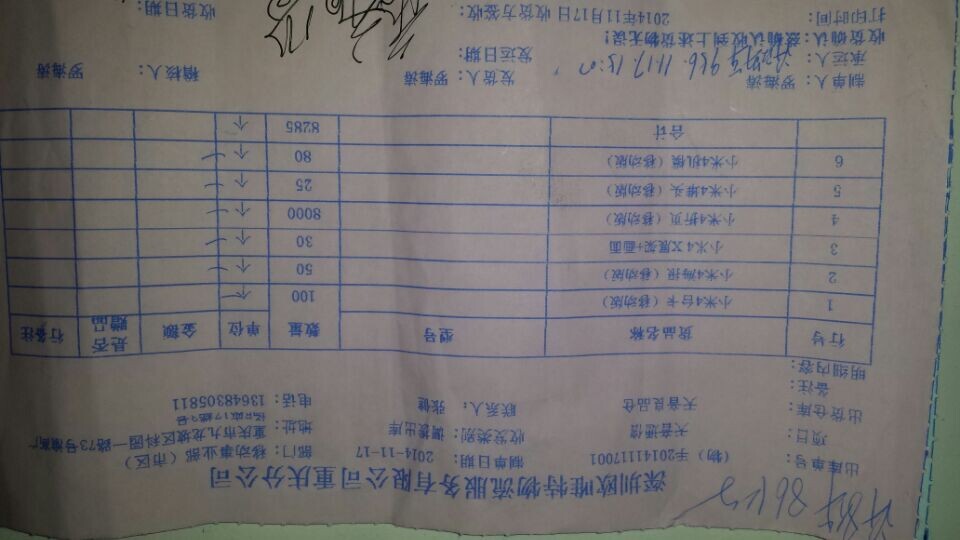 深圳欧唯特物流服务有限公司重庆分公司
出库单号： （物）手20141117001 制单日期： 2014-11-17 部门： 移动事业部（市区）
项目： 天音通信 收发类别： 调拨出库 地址： 重庆市九龙坡区科园一路73号
出货仓库： 天音良品仓 联系人： 张健 电话： 13648305811
备注：
明细内容：
行号 货品名称 型号 数量 单位 金额 是否赠品 行备注
1 小米4台卡（移动版） 100 个
2 小米4海报（移动版） 50 个
3 小米４X展架+画面 30 个
4 小米4折页（移动版） 8000 个
5 小米4堆头（移动版） 25 个
6 小米4机模（移动版） 80 个
合计 8285 个
制单人： 罗海涛 发货人： 罗海涛 稽核人： 罗海涛
承运人： 986 11.17 15:00 发运日期：
收货确认：兹确认收到上述货物无误！
打印时间： 2014年11月17日 收货方签收： 收货日期：